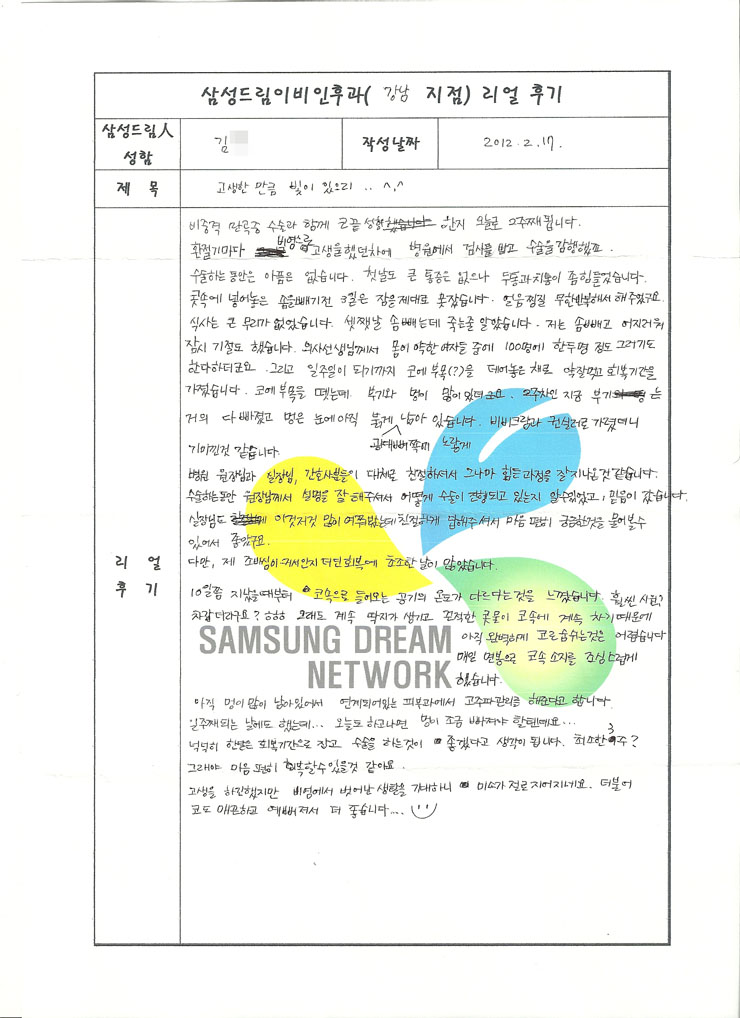 삼성드림이비인후과( 강남 지점) 리얼 후기
삼성드림人 성함
김
작성날짜
2012. 2. 17.
제 목
고생한 만큼 빛이 있으리 .. ^.^
리 얼 후 기
비중격 만곡증 수술과 함께 코끝 성형 한지 오늘로 2주째 됩니다.
환절기마다 비염으로 고생을 했던차에 병원에서 검사를 받고 수술을 감행했죠.
수술하는 동안은 아픔은 없습니다. 첫날도 큰 통증은 없으나 두통과 치통이 좀 힘들었습니다.
콧속에 넣어놓은 솜을 빼기전 3일은 잠을 제대로 못잤습니다. 얼음찜질 무한반복해서 해주었구요.
식사는 큰 무리가 없었습니다. 셋쨋날 솜 빼는데 죽는줄 알았습니다. 저는 솜빼고 어지러워
잠시 기절도 했습니다. 의사선생님께서 몸이 약한 여자들 중에 100명에 한두명 정도 그러기도
한다하더군요. 그리고 일주일이 되기까지 코에 부목(?)을 대어놓은 채로 약 잘먹고 회복기간을
가졌습니다. 코에 부목을 뗐는데 부기와 멍이 많이 있더군요. 2주차인 지금 부기는
거의 다 빠졌고 멍은 눈에 아직 붉게 남아 있습니다. 비비크림과 컨실러로 가렸더니
광대뼈쪽에 노랗게
병원 원장님과 실장님, 간호사분들이 대체로 친절하셔서 그나마 힘든 과정을 잘 지나온것 같습니다.
수술하는 동안 원장님께서 설명을 잘 해주셔서 어떻게 수술이 진행되고 있는지 알수있었고, 믿음이 갔습니다.
실장님도 이것저것 많이 여쭤봤는데 친절하게 답해주셔서 마음 편히 궁금한것을 물어볼수
있어서 좋았구요.
다만, 제 조바심이 커서인지 더딘 회복에 초조한 날이 많았습니다.
10일쯤 지났을 때부터 코속으로 들어오는 공기의 온도가 다르다는 것을 느꼈습니다. 훨씬 시원?
차갑더라구요? ㅎㅎㅎ 그래도 계속 딱지가 생기고 끈적한 콧물이 코속에 계속 차기 때문에
아직 완벽하게 고르 숨쉬는것은 어렵습니다
매일 면봉으로 코속 소지를 조심스럽게
했습니다.
SAMSUNG DREAM
NETWORK
아직 멍이 많이 남아있어서 연계되어있는 피부과에서 고주파관리를 해준다고 합니다.
일주째되는 날에도 했는데... 오늘도 하고나면 멍이 조금 빠져야 할텐데요...
넉넉히 한달은 회복기간으로 잡고 수술을 하는것이 좋겠다고 생각이 됩니다. 최소한 3주?
그래야 마음 편히 회복할수 있을것 같아요.
고생을 하긴했지만 비염에서 벗어난 생활을 기대하니 미소가 절로 지어지네요. 더불어
코도 매끈하고 예뻐져서 더 좋습니다....